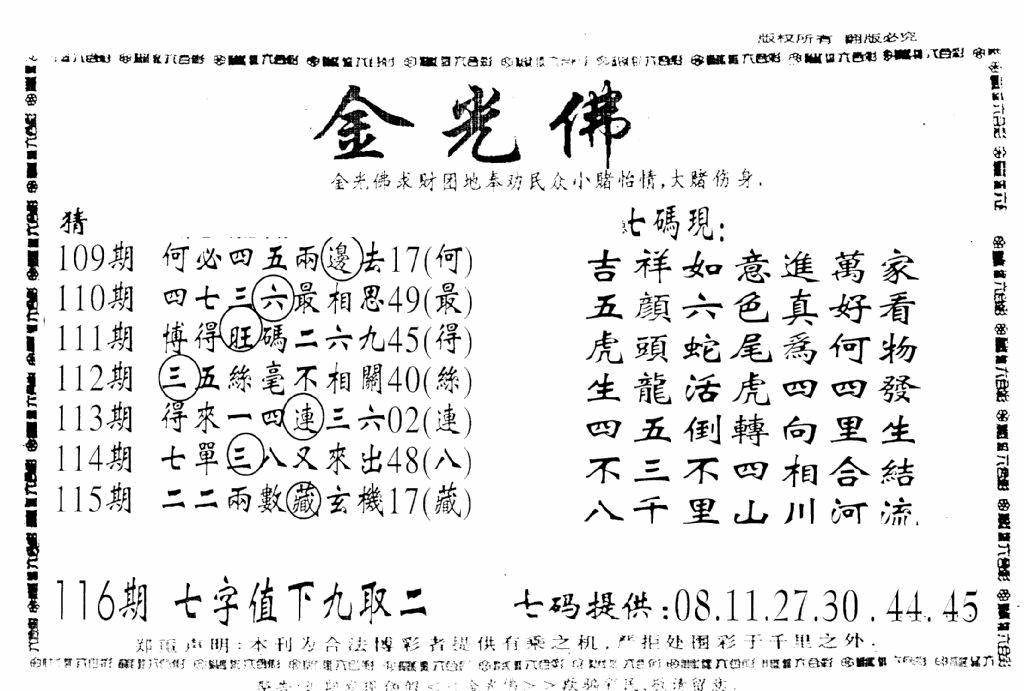 版权所有 翻版必究
金光佛
金光佛求财团地奉劝民众小赌怡情,大赌伤身.
猜
109期 何必四五兩邊去17(何)
110期 四七三六最相思49(最)
111期 博得旺碼二六九45(得)
112期 三五絲毫不相關40(絲)
113期 得來一四連三六02(連)
114期 七單三八又來出48(八)
115期 二二兩數藏玄機17(藏)
七碼現:
吉祥如意進萬家
五顏六色真好看
虎頭蛇尾爲何物
生龍活虎四四發
四五倒轉向里生
不三不四相合結
八千里山川河流.
116期 七字值下九取二
七码提供:08.11.27.30.44.45
郑重声明:本刊为合法博彩者提供有乘之机,严拒处围彩于千里之外.